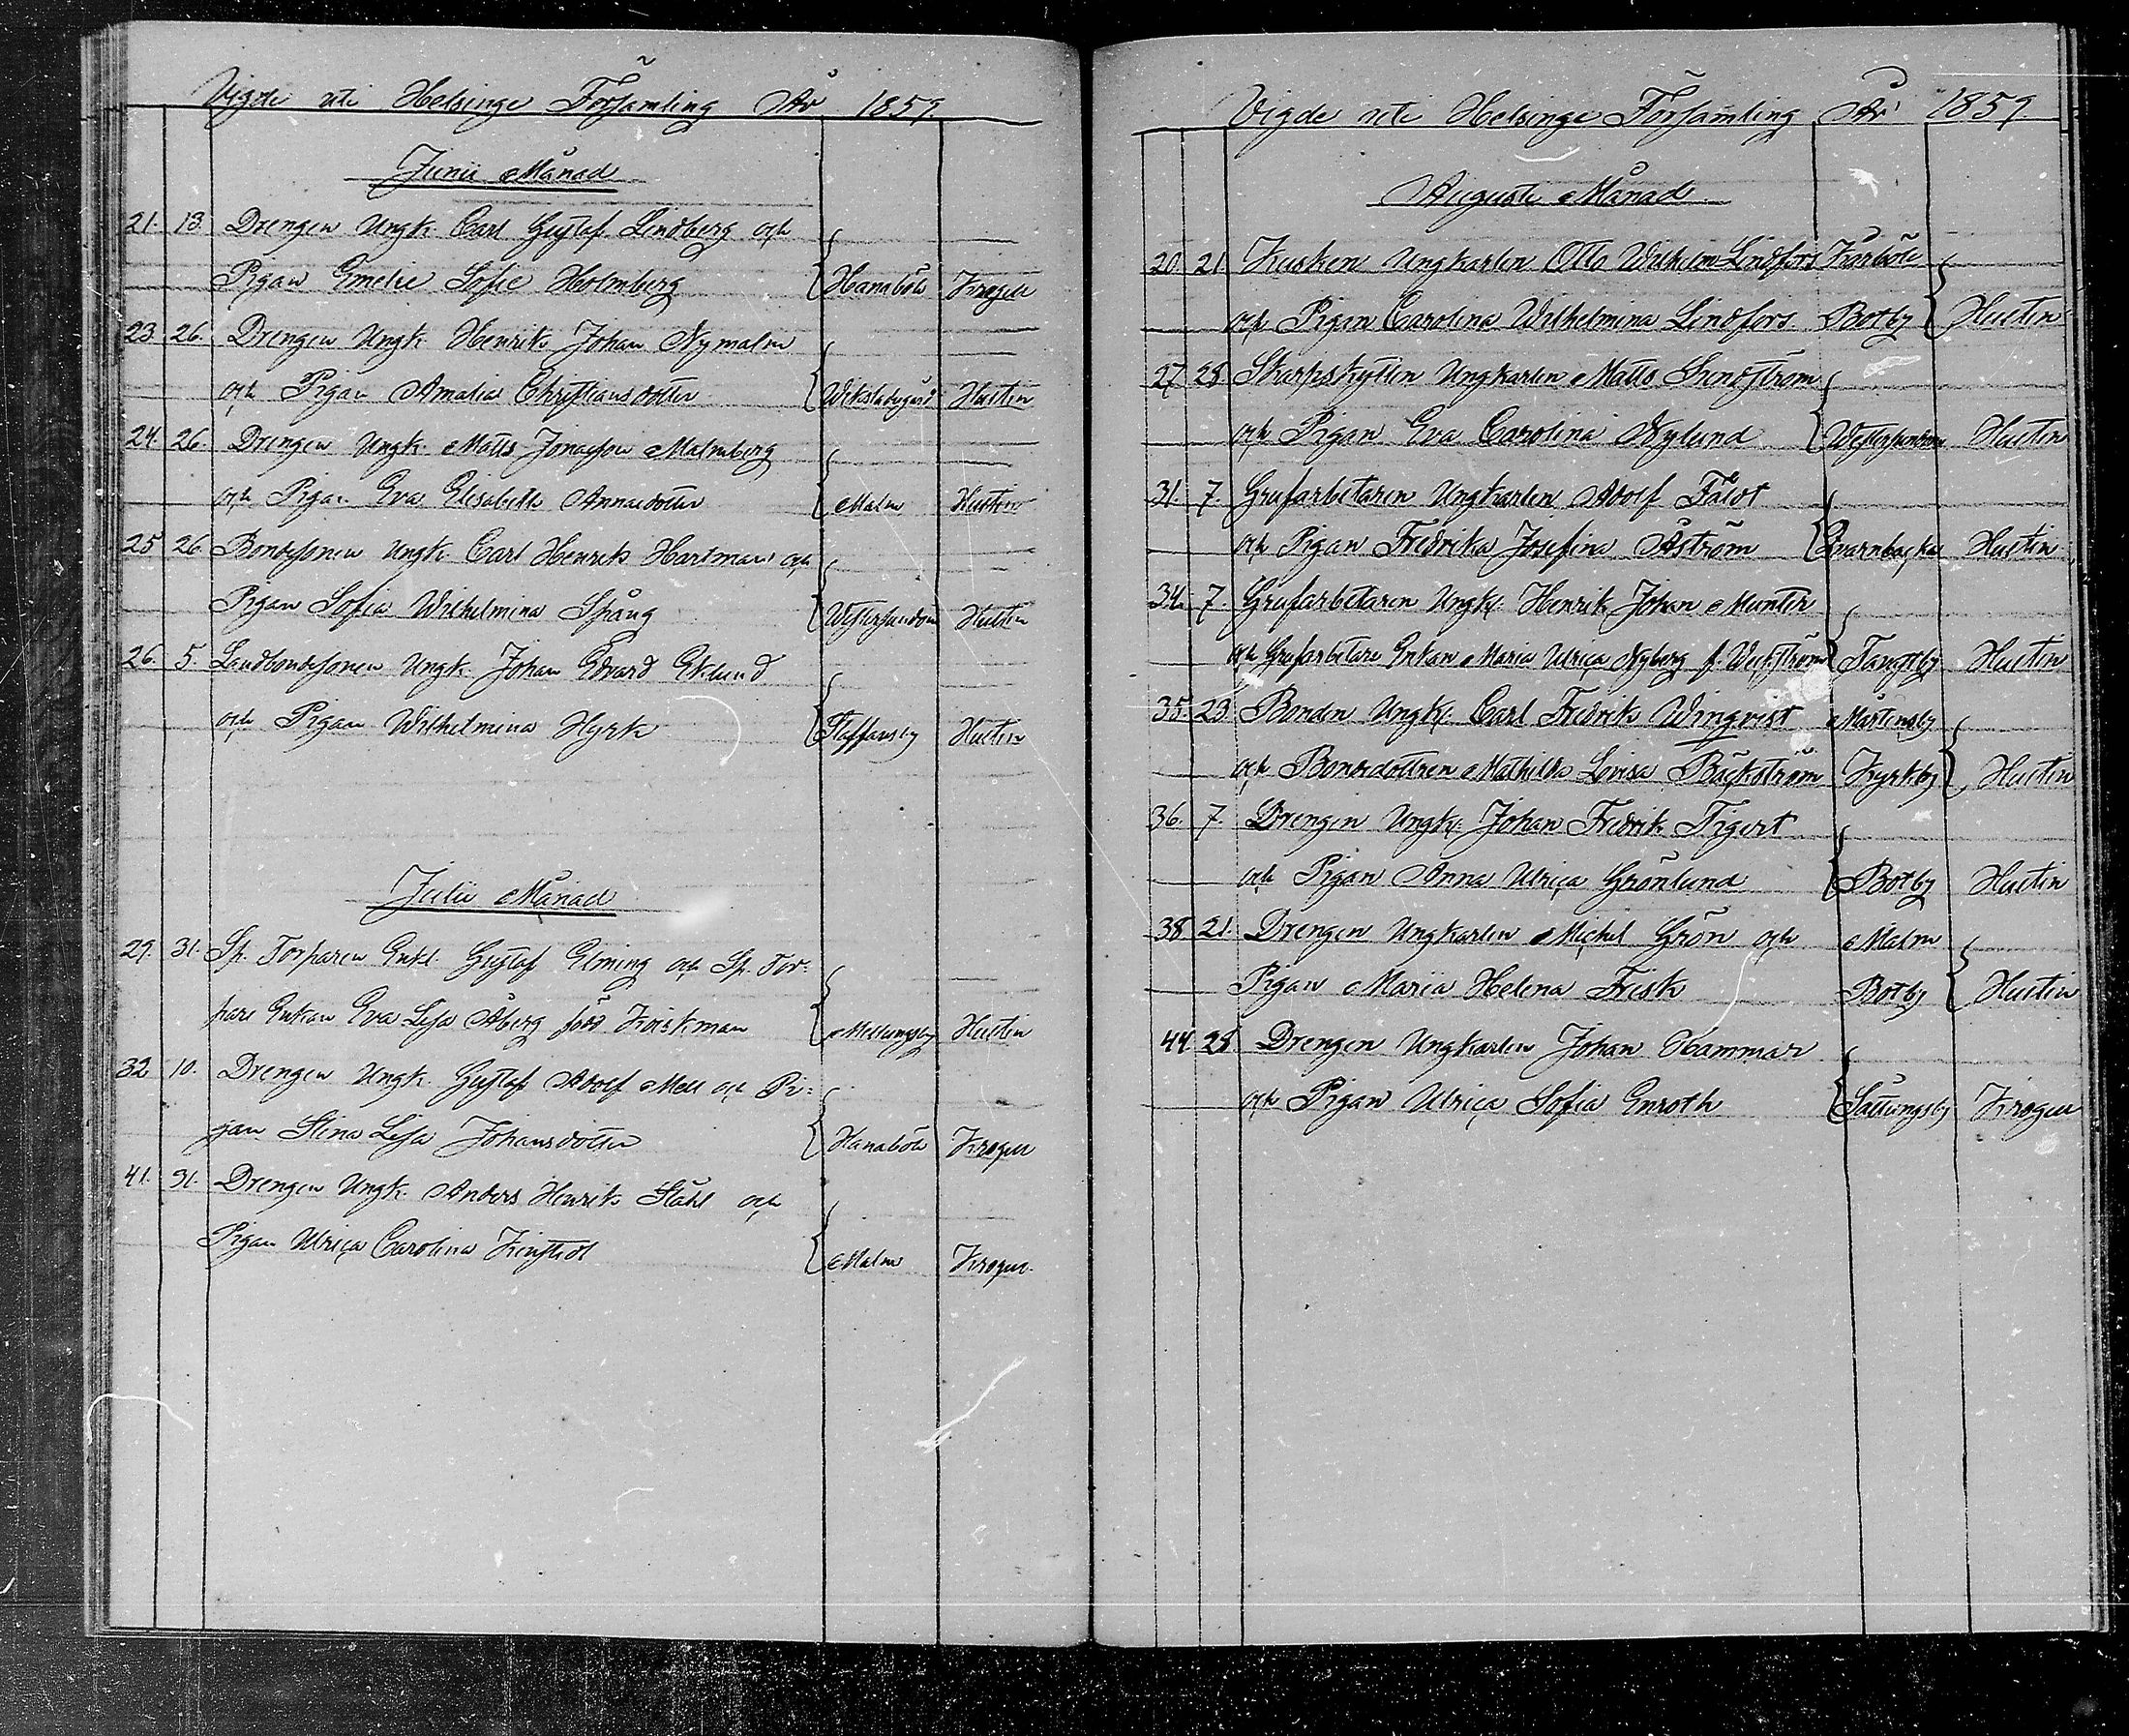 Vigde uti Helsinge Församling År 1859.
Junii Månad
21. 13. Drengen Ungk. Carl Gustaf Lindberg och
Pigan Emelie Sofie Holmberg Hanaböle Krogell
23. 26. Drengen Ungk. Henrik Johan Nymalm
och Pigan Amalia Christiansdotter Hustin
24. 26. Drengen Ungk. Matts Jonasson Malmberg
och Pigan Eva Elisabeth Annasdotter Malm Hustin
25 26 Bondesonen Ungk. Carl Henrik Hartman och
Pigan Sofia Wilhelmina Spång Westersundom Hustin
26. 5. Landbondesonen Ungk. Johan Edvard Eklund
och Pigan Wilhelmina Hyrk Staffansby Hustin
Julii Månad
29. 31. Sp. Torparen Enkl. Gustaf Elming och Sp. Tor-
pare Enkan Eva Lisa Åberg född Koiskman Mellungsby Hustin
32 10. Drengen Ungk. Gustaf Adolf Mell och Pi-
gan Stina Lisa Johansdotter Hanaböle Krogell
41. 31. Drengen Ungk. Anders Henrik Ståhl och
Pigan Ulrica Carolina Malm Krogell
Vigde uti Helsinge Församling År 1859.
Augusti Månad
20. 21 Kusken Ungkarlen Otto Wilhelm Lindfors Kårböle
och Pigan Carolina Wilhelmina Lindfors Botby Hustin
27 28 Skarpskytten Ungkarlen Matts Sundström
och Pigan Eva Carolina Nylund Westersundom Hustin
31. 7. Grufarbetaren Ungkarlen Adolf Fäldt
och Pigan Fredrika Josefina Åström Qvarnbacka Hustin
34. 7. Grufarbetaren Ungk. Henrik Johan Munter
och Grufarbetare Enkan Maria Ulrica Nyberg f. Weckström Hustin
35. 23 Bonden Ungk. Carl Fredrik Winqvist Mårtensby
och Bondedottren Mathilda Lovisa Bäckström Kyrkby Hustin
36. 7. Drengen Ungk. Johan Fredrik Tigert
och Pigan Anna Ulrica Grönlund Botby Hustin
38. 21. Drengen Ungkarlen Michel Grön och Malm
Pigan Maria Helena Frisk Botby Hustin
44. 28 Drengen Ungkarlen Johan Hammar
och Pigan Ulrica Sofia Enroth Krogell